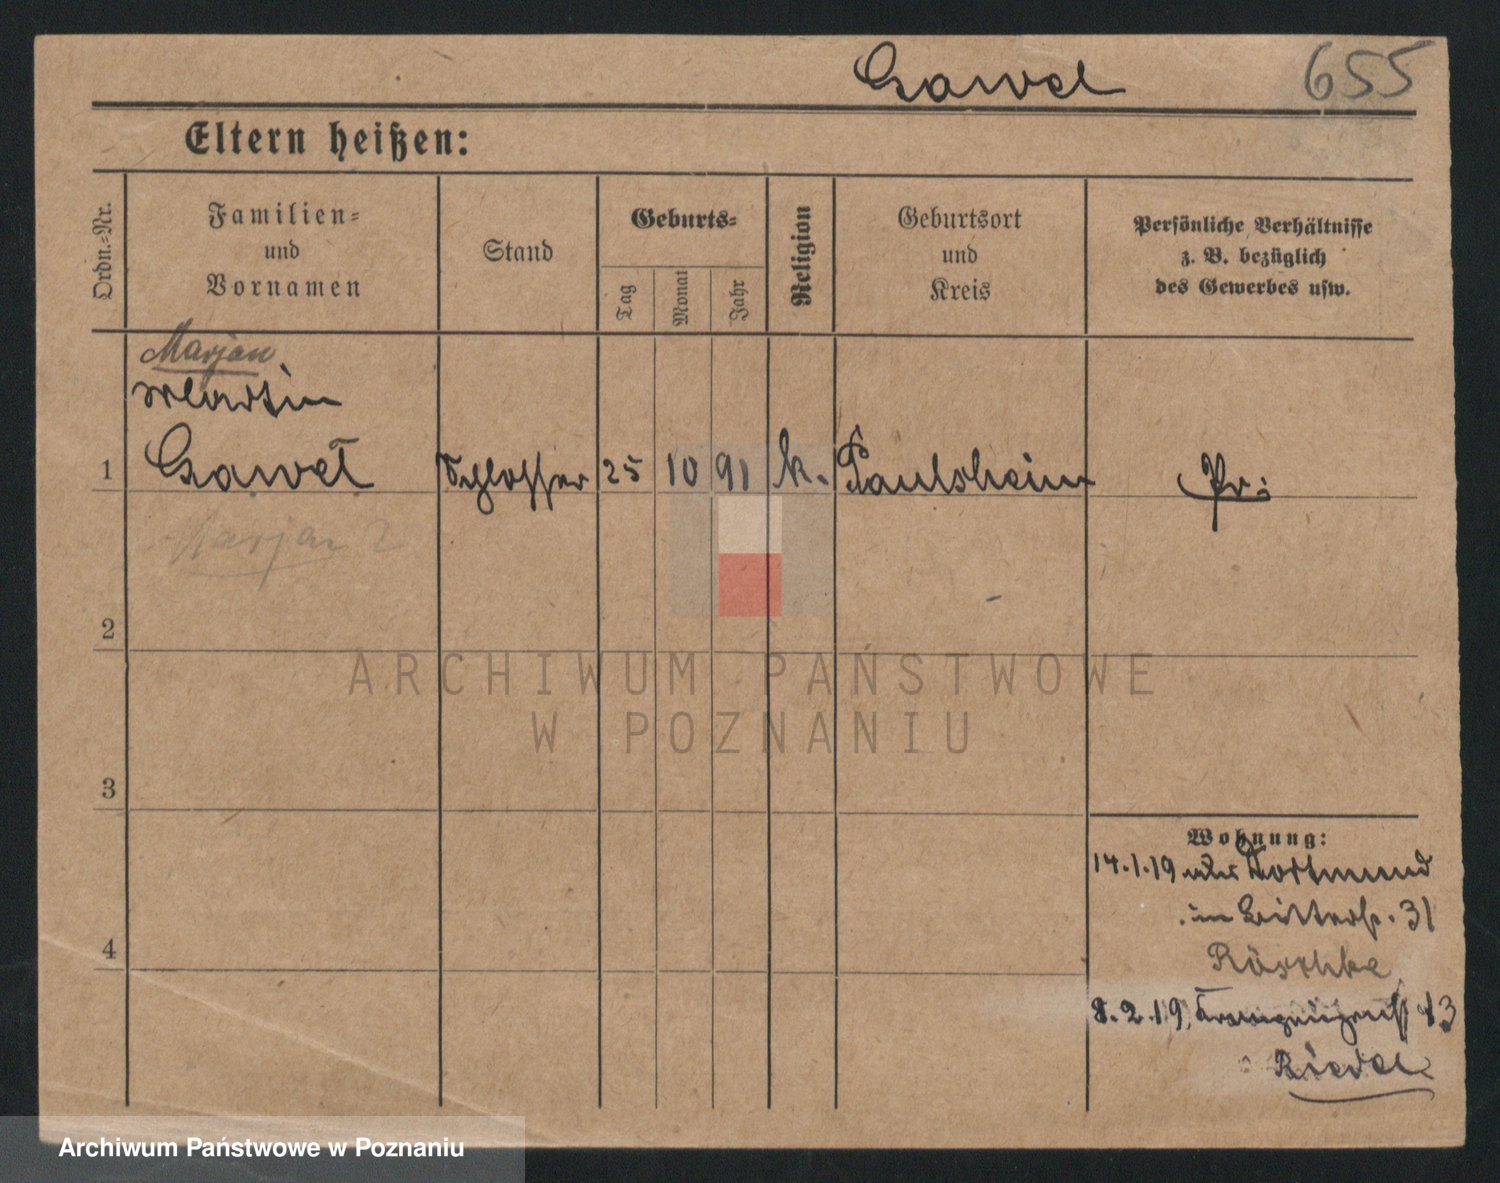 Gawel 655
Eltern heißen:
Ordn.=Nr.
Familien=
und
Vornamen
Stand
Geburts=
Tag
Monat
Jahr
Religion
Geburtsort
und
Kreis
Persönliche Verhältnisse
z. B. bezüglich
des Gewerbes usw.
Marjan
Martin
1 Gawel Schlosser 25 10 91 k. Paulsheim Pr:
Marjan ?
2
3
4
Wohnung:
14.1.19 Dortmund
im 31
Röschke
8.2.19. 43
Riedel
ARCHIWUM PAŃSTWOWE
W POZNANIU
Archiwum Państwowe w Poznaniu